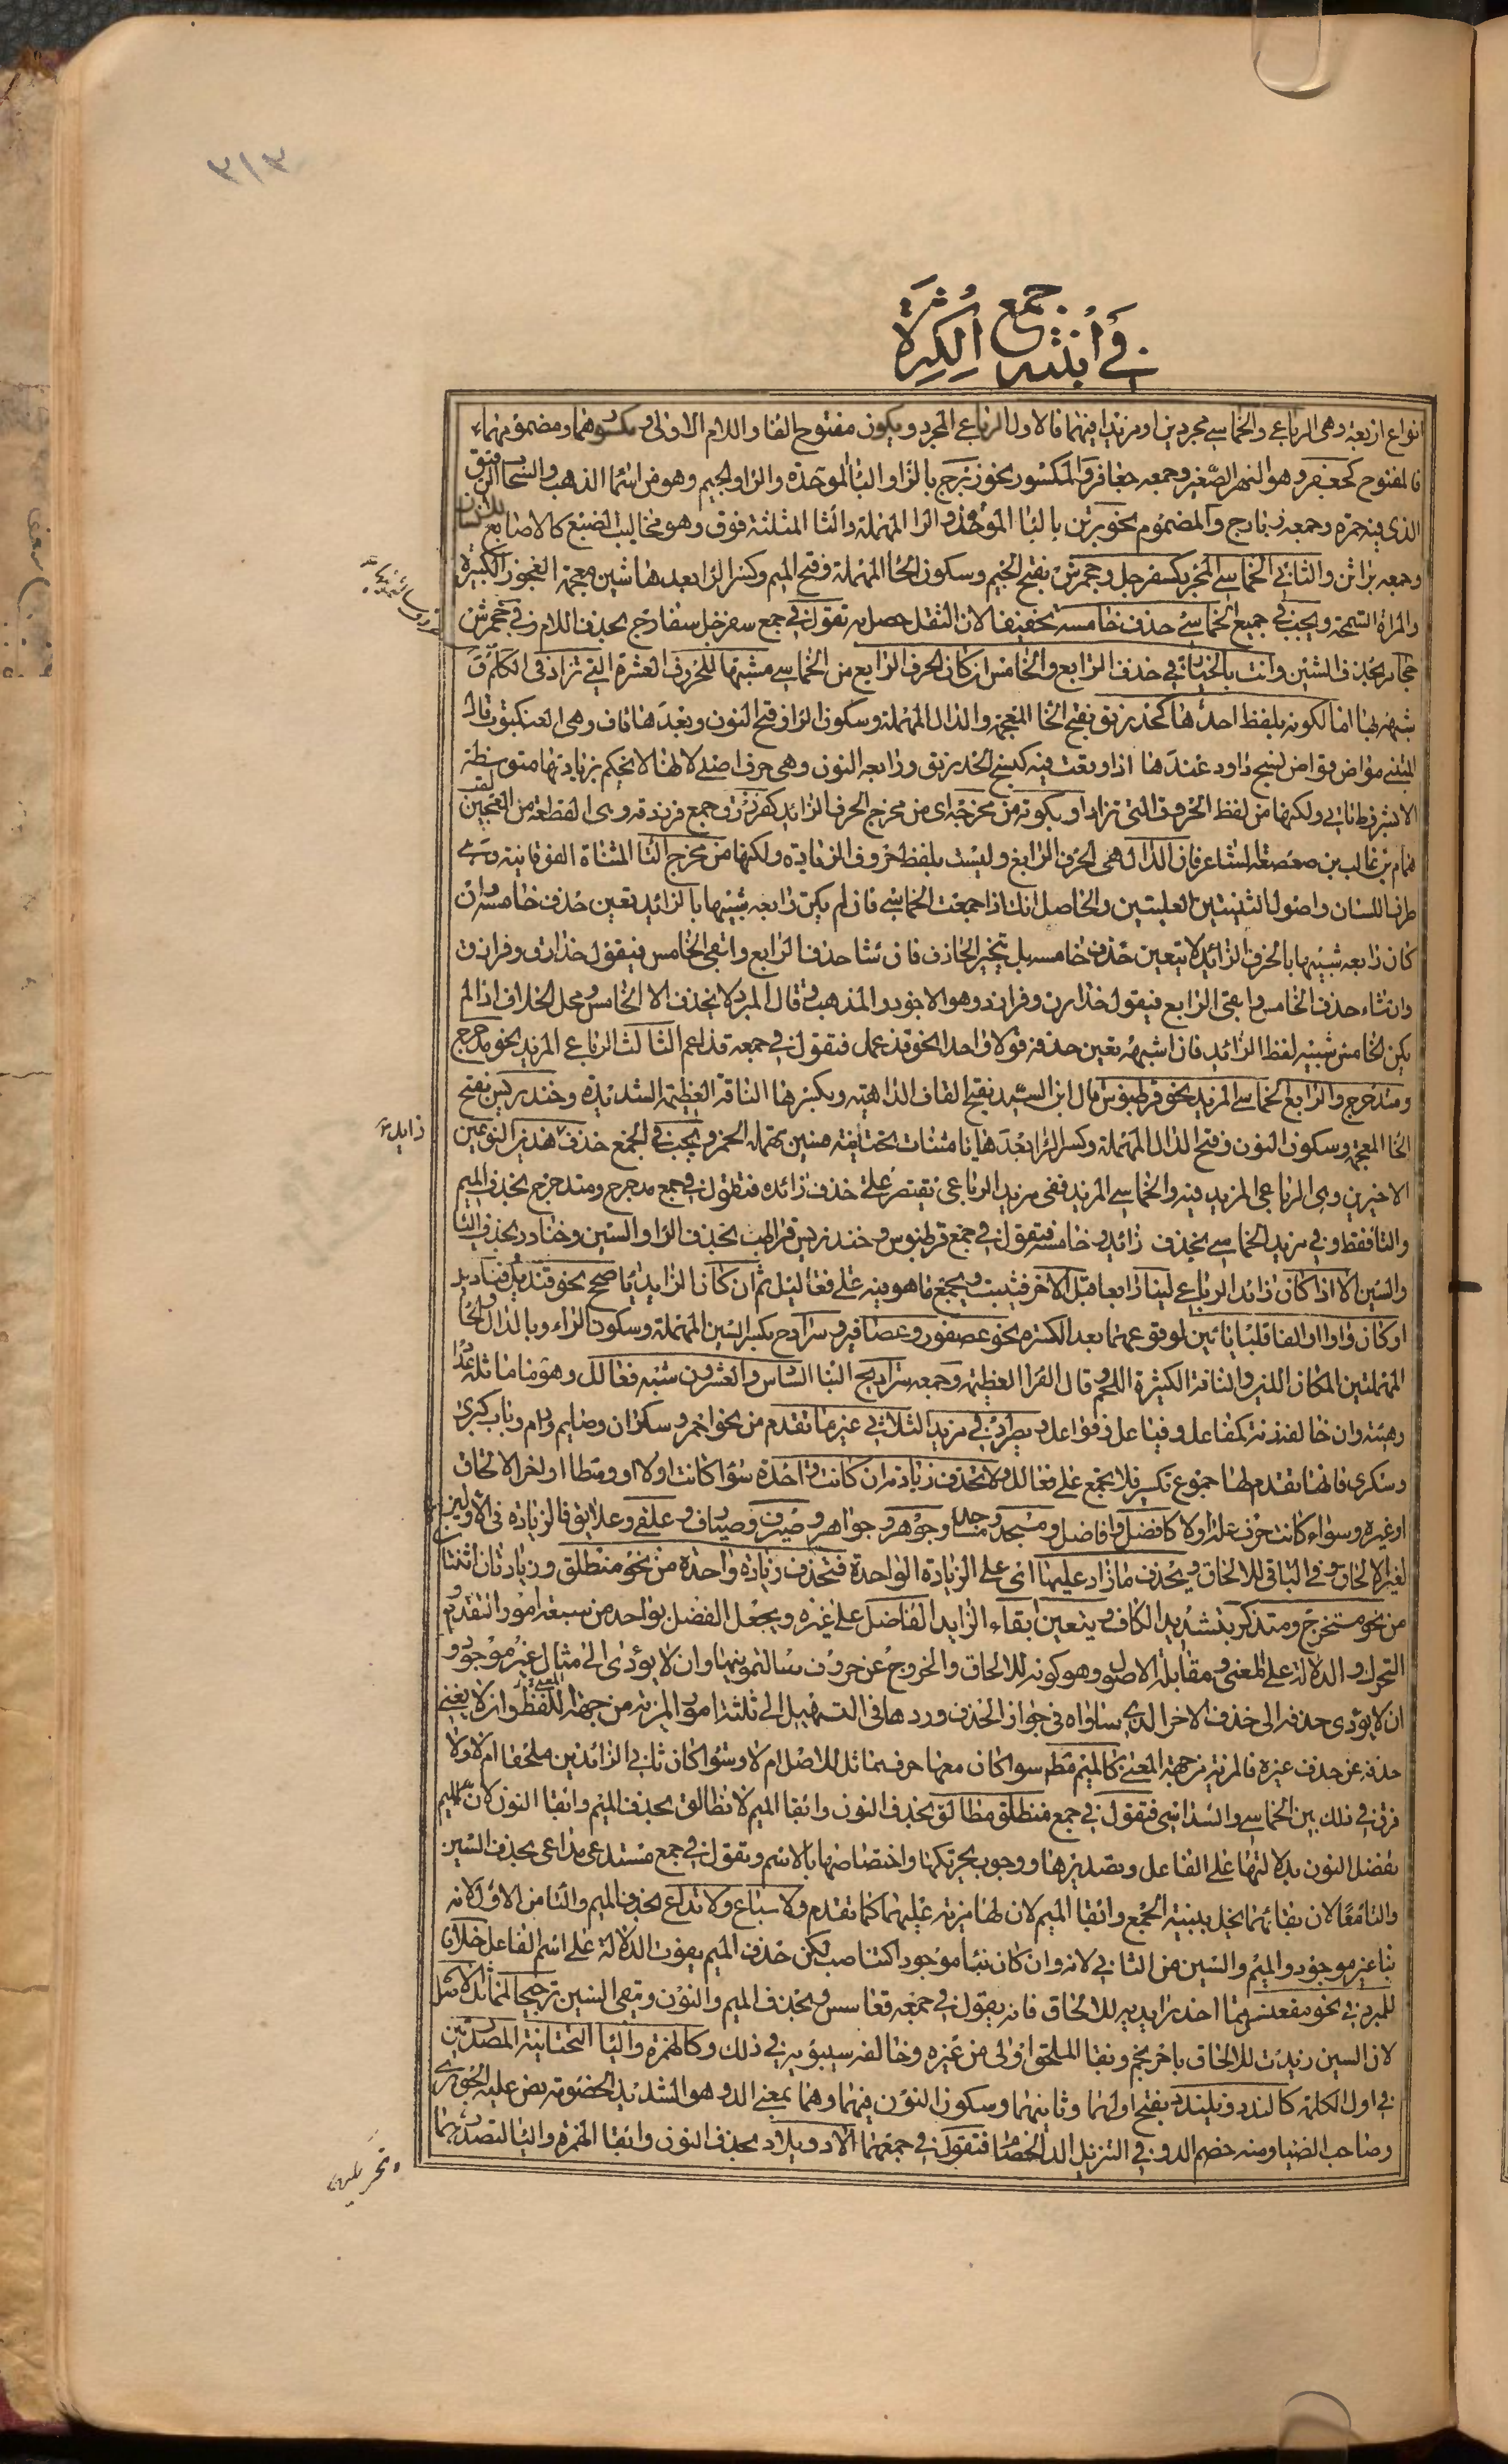 ٣١٣
في أبنية جمع الكثرة
انواع اربعة وهى الرباعي والخماسي مجردين او مزيدا فيهما فالاول الرباعي المجرد ويكون مفتوح الفا واللام الاولى ومكسورهما ومضمومهما
فالمفتوح كجعفر وهو النهر الصغير وجمعه جعافر والمكسور نحو زبرج بالزاو البا الموحدة والرا والجيم وهو من اسما الذهب والسحاب الرقيق
الذى فيه حمرة وجمعه زبارج والمضموم نحو برثن بالبا الموحدة والرا المهملة والثا المثلثة فوق وهو مخالب الضبع كالاصابع للانسان
وجمعه براثن والثاني الخماسي المجرد كسفرجل وجحمرش بفتح الجيم وسكون الحا المهملة وفتح الميم وكسر الرا بعدها شين معجمة العجوز الكبيرة
والمراة السمجة ويجب في جميع الخماسي حذف خامسه تخفيفا لان الثقل حصل به تقول في جمع سفرجل سفارج بحذف اللام وفي جحمرش
جحامر بحذف الشين وانت بالخيار في حذف الرابع والخامس ان كان الحرف الرابع من الخماسي مشبها للحروف العشرة التي تزاد في الكلام ق
شبهه بها اما لكونه بلفظ احدها كخدرنق بفتح الخا المعجمة والدال المهملة وسكون الرا وفتح النون وبعدها قاف وهى العنكبوت قال
المتنبي مواض قواض نسج داود عندها اذا وقعت فيه كنسج الخدرنق ورابعه النون وهى حرف اصلي لا لها لا يحكم بزيادتها متوسطة
الا بشرط تاتي ولكنها من لفظ الحروف التي تزاد او بكونه من مخرجه اى من مخرج الحرف الزائد كفرزدق جمع فرزدقة وهى القطعة من العجين لقب
همام بن غالب بن صعصعة الشاعر فان الدال هى الحرف الرابع وليست بلفظ حروف الزيادة ولكنها من مخرج التا المثناة الفوقانية وهي
طرف اللسان واصول الثنيتين العليتين والحاصل انك اذا جمعت الخماسي فان لم يكن رابعه شبيها بالزائد تعين حذف خامسه وان
كان رابعه شبيها بالحرف الزائد لا يتعين حذف خامسه بل يتخير الحاذف فان شا حذف الرابع وابقى الخامس فيقول خدارق وفرازق
وان شاء حذف الخامس وابقى الرابع فيقول خدارن وفرازد وهو الاجود والمذهب وقال المبرد لا يحذف الا الخامس ومحل الخلاف اذا لم
يكن الخامس شبيه لفظ الزائد فان اشبهه تعين حذفه قولا واحدا نحو قذعمل فتقول في جمعه قذاعم الثالث الرباعي المزيد نحو مدحرج
ومتدحرج والرابع الخماسي المزيد نحو قرطبوس قال ابن السيد بفتح القاف الداهية وبكسرها الناقة العظيمة الشديدة وخندريس بفتح
الخا المعجمة وسكون النون وفتح الدال المهملة وكسر الرا بعدها يا مثناة تحتانية فسين مهملة الخمر ويجب في الجمع حذف هذين النوعين
الاخيرين وهى الرباعي المزيد فيه والخماسي المزيد ففى مزيد الرباعي تقتصر على حذف زائده فتقول في جمع مدحرج ومتدحرج بحذف الميم
والتا فقط وفي مزيد الخماسي بحذف زائده وخامسه فتقول في جمع قرطبوس وخندريس قراطب بحذف الواو والسين وخنادر بحذف اليا
والسين الا اذا كان زائد الرباعي لينا رابعا قبل الاخر فيثبت ويجمع ما هو فيه على فعاليل ثم ان كان الزايد يا صحح نحو قنديل وقناديل
او كان واوا او الفا قلبا يائين لوقوعهما بعد الكسرة نحو عصفور وعصافير وسرداح بكسر السين المهملة وسكون الراء وبالدال والحا
المهملتين المكان اللين والناقة الكثيرة اللحم وقال الفرا العظيمة وجمعه سراديح البنا السادس والعشرون شبه فعالل وهو ما ماثله عددا
وهيئة وان خالفه زنة كمفاعل وفياعل وفواعل ويطرد في مزيد الثلاثي غير ما تقدم من نحو احمر وسكران وصايم ورام وباب كبرى
وسكرى فانها تقدم لها جموع تكسير فلا يجمع على فعالل ولا تحذف زيادته ان كانت واحدة سوا كانت اولا او وسطا او اخرا لالحاق
او غيره وسواء كانت حرف علة اولا كافضل وافاضل ومسجد ومساجد وجوهر وجواهر وصيرف وصيارف وعلقى وعلاق فالزيادة في الاولين
لغير الالحاق وفي الباقي للالحاق ويحذف ما زاد عليها اى على الزيادة الواحدة فتحذف زيادة واحدة من نحو منطلق وزيادتان اثنتان
من نحو مستخرج ومتذكر بتشديد الكاف ويتعين ابقاء الزايد الفاضل على غيره ويجعل الفضل بواحد من سبعة امور التقدم و
التحرك والدلالة على المعنى ومقابلة الاصل وهو كونه للالحاق والخروج عن حروف سالتمونيها وان لا يؤدى الى مثال غير موجود و
ان لا يؤدى حذفه الى حذف الاخر الذي ساواه في جواز الحذف وردها في التسهيل الى ثلثة امور المزية من جهة المعنى واللفظ وان لا يغني
حذفه عن حذف غيره فالمزية من جهة المعنى كالميم مطلقا سوا كان معها حرف مماثل للاصل ام لا وسوا كان ثاني الزائدين ملحقا ام لا ولا
فرق في ذلك بين الخماسي والسداسي فتقول في جمع منطلق مطالق بحذف النون وابقا الميم لا نطالق بحذف الميم وابقا النون لان الميم
تفضل النون بدلالتها على الفاعل وتصديرها ووجوب تحركها واختصاصها بالاسم وتقول في جمع مستدعي مداعي بحذف السين
والتا معا لان بقائهما يخل ببنية الجمع وابقا الميم لان لها مزية عليهما كما تقدم ولا سداع ولا تداع بحذف الميم والتا من الاول لانه
بنا غير موجود والميم والسين من الثاني لانه وان كان بنا موجودا كتناصب لكن حذف الميم يفوت الدلالة على اسم الفاعل خلافا
للمبرد في نحو مقعنسس مما احد زايديه للالحاق فانه يقول في جمعه قعاسس بحذف الميم والنون ويبقى السين ترجيحا لمماثل الاصل
لان السين زيدت للالحاق باحرنجم وبقا الملحق اولى من غيره وخالفه سيبويه في ذلك وكالهمزة واليا التحتانية المصدرتين
في اول الكلمة كالندد ويلندد بفتح اولهما وثانيهما وسكون النون فيهما وهما بمعنى الالد وهو الشديد الخصومة نص عليه الجوهري
وصاحب الضيا ومنه خصم الد وفي التنزيل الد الخصام فتقول في جمعهما الاد ويلاد بحذف النون وابقا الهمزة واليا لتصدرهما
زايد
وتحركهما